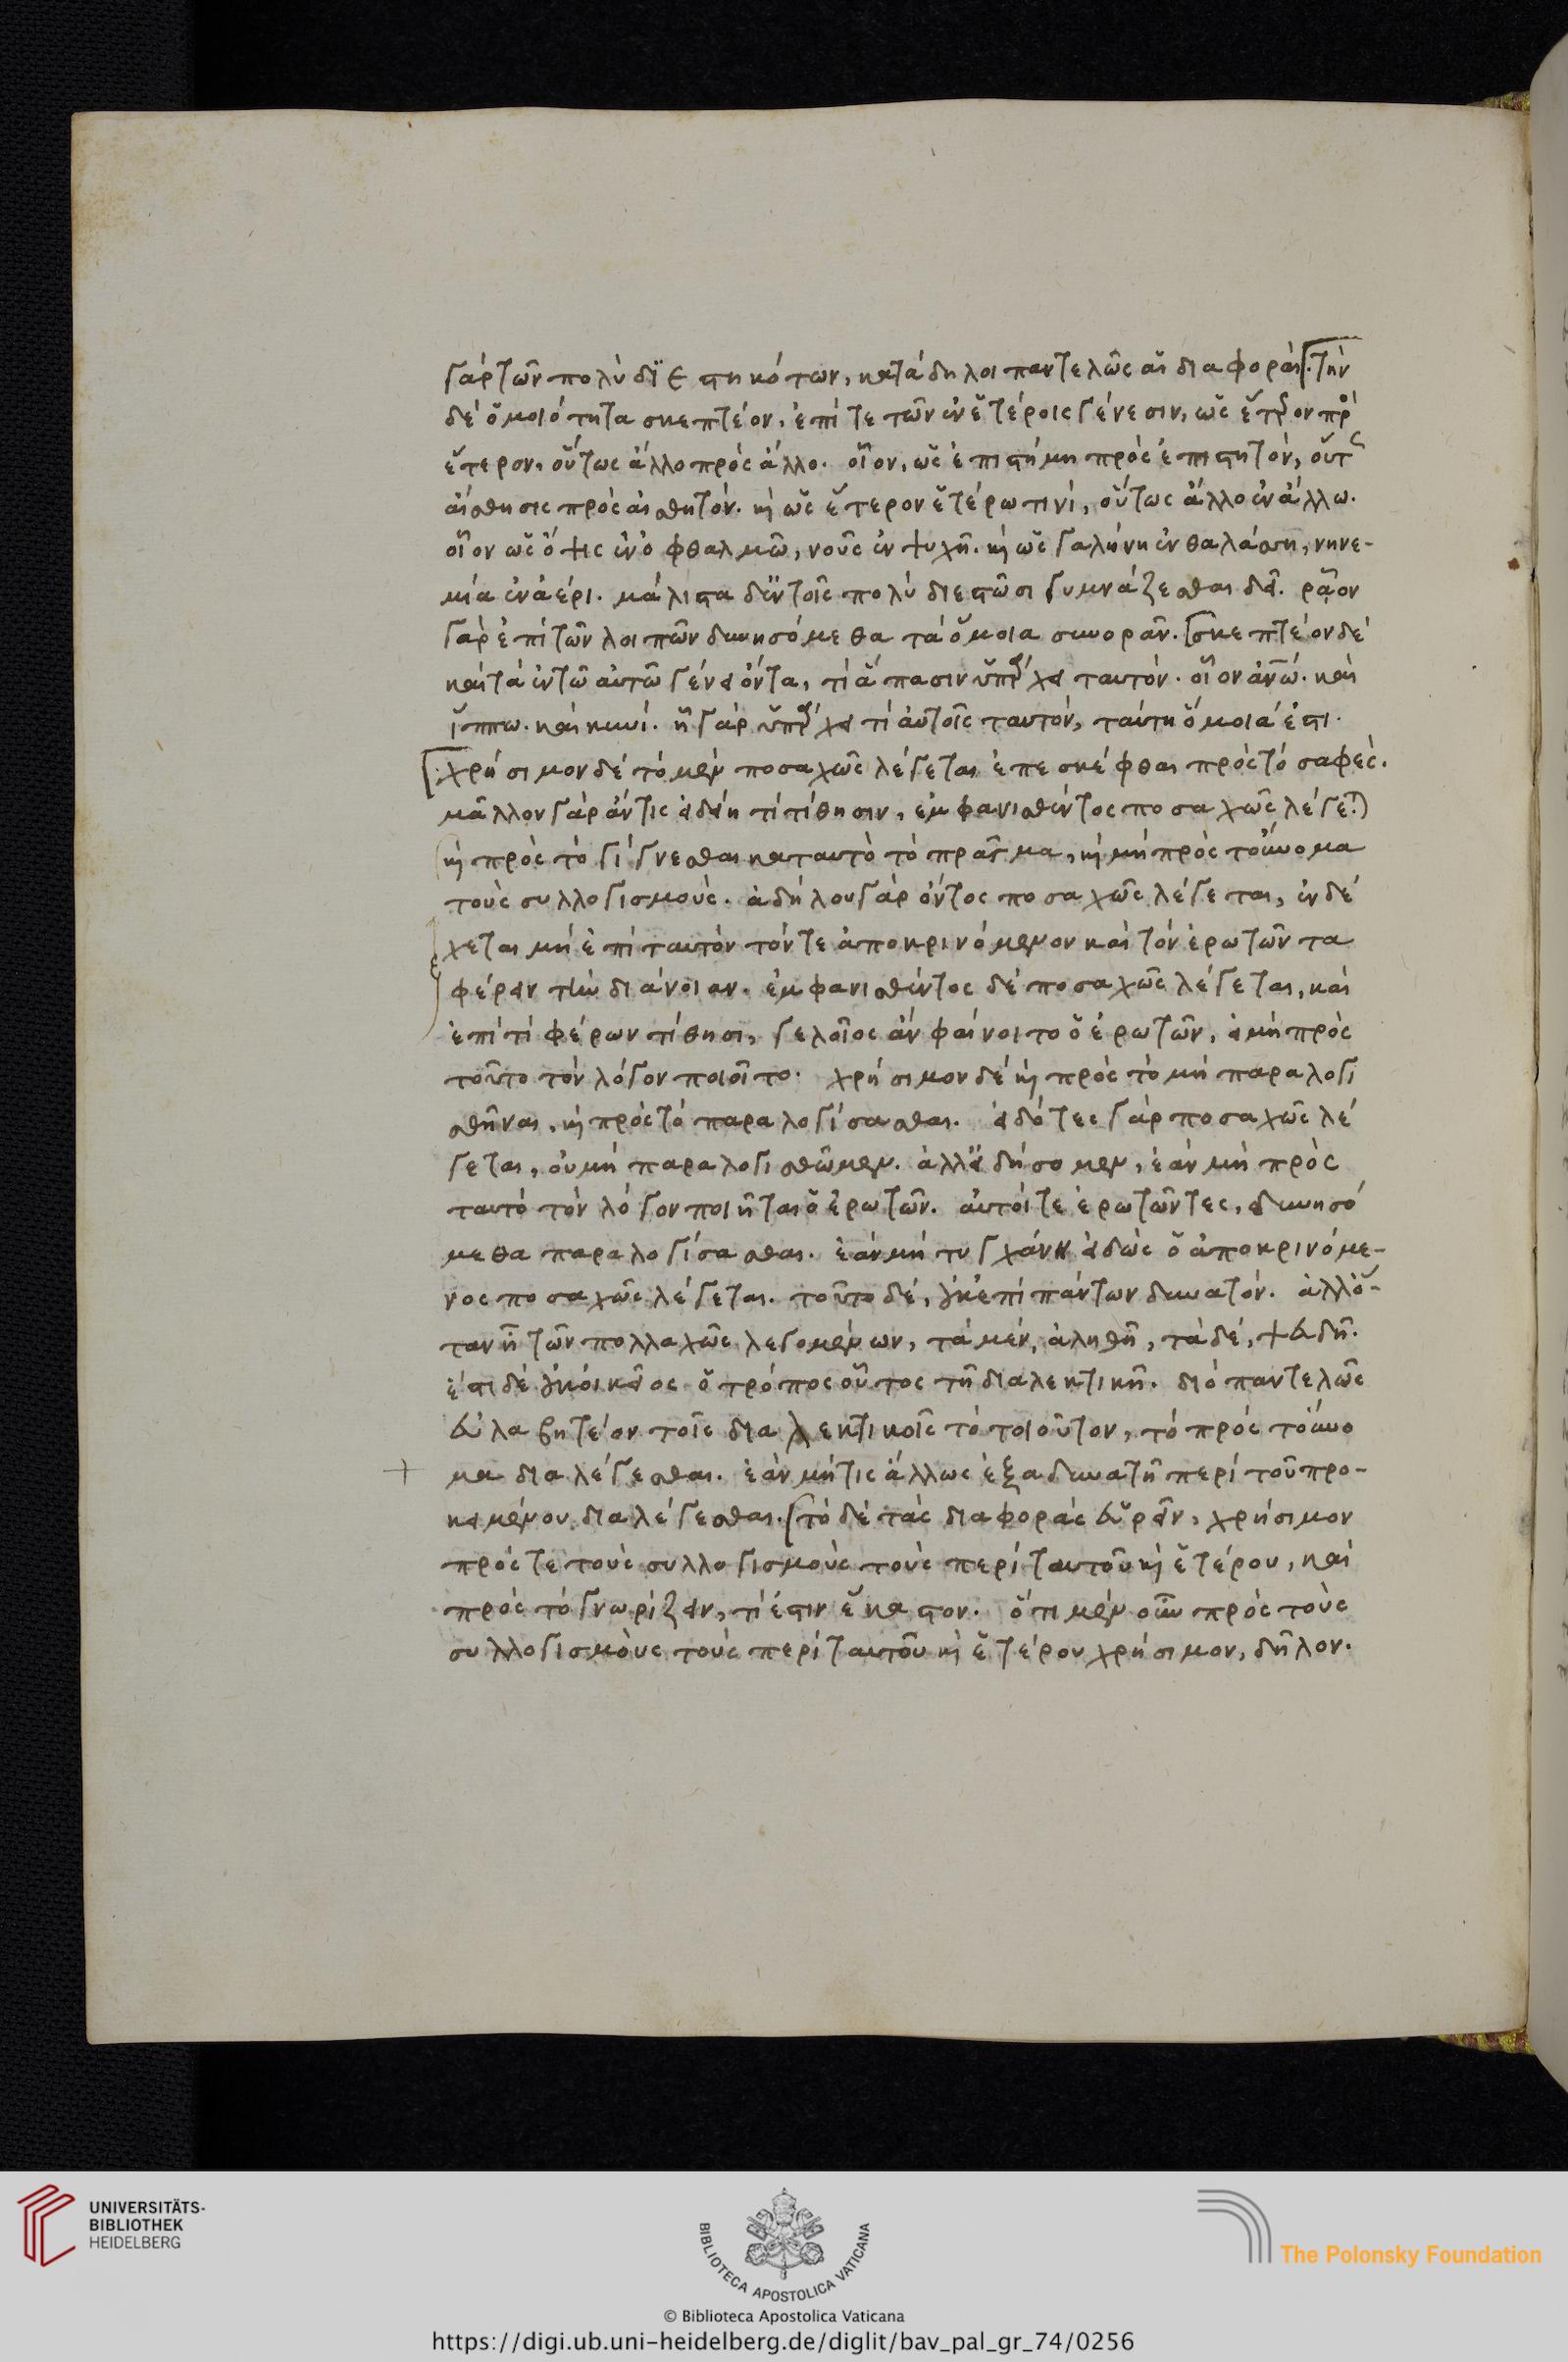 γὰρ τῶν πολὺ διεστηκότων, κατάδηλοι παντελῶς αἱ διαφοραί. τὴν
δὲ ὁμοιότητα σκεπτέον, ἐπί τε τῶν ἐν ἑτέροις γένεσιν, ὡς ἕτερον πρὸς
ἕτερον, οὕτως ἄλλο πρὸς ἄλλο. οἷον, ὡς ἐπιστήμη πρὸς ἐπιστητόν, οὕτως
αἴσθησις πρὸς αἰσθητόν. καὶ ὡς ἕτερον ἑτέρω τινί, οὕτως ἄλλο ἐν ἄλλω.
οἷον ὡς ὄψις ἐν ὀφθαλμῶ, νοῦς ἐν ψυχῆ. καὶ ὡς γαλήνη ἐν θαλάσση, νηνε-
μία ἐν ἀέρι. μάλιστα δ' ἐν τοῖς πολὺ διεστῶσι γυμνάζεσθαι δεῖ. ρᾶον
γὰρ ἐπὶ τῶν λοιπῶν δυνησόμεθα τὰ ὅμοια συνορᾶν. σκεπτέον δὲ
καὶ τὰ ἐν τῶ αὐτῶ γένει ὄντα, τί ἅπασιν ὑπάρχει ταυτόν. οἷον ἀνθρώπω. καὶ
ἵππω. καὶ κυνί. ἧ γὰρ ὑπάρχει τι αὐτοῖς ταυτόν, ταύτη ὅμοιά ἐστι.
χρήσιμον δὲ τὸ μὲν ποσαχῶς λέγεται ἐπεσκέφθαι πρὸς τὸ σαφές.
μᾶλλον γὰρ ἄν τις εἰδείη τί τίθησιν, ἐμφανισθέντος ποσαχῶς λέγεται
καὶ πρὸς τὸ γίγνεσθαι κατ αυτὸ τὸ πρᾶγμα, καὶ μὴ πρὸς τοὔνομα
τοὺς συλλογισμούς. ἀδήλου γὰρ ὄντος ποσαχῶς λέγεται, ἐνδέ
χεται μὴ ἐπὶ ταυτὸν τόν τε ἀποκρινόμενον καὶ τὸν ἐρωτῶντα
φέρειν τὴν διάνοιαν. ἐμφανισθέντος δὲ ποσαχῶς λέγεται, καὶ
ἐπὶ τί φέρων τίθησι, γελοῖος ἂν φαίνοιτο ὁ ἐρωτῶν, εἰ μὴ πρὸς
τοῦτο τὸν λόγον ποιοῖτο. χρήσιμον δὲ καὶ πρὸς τὸ μὴ παραλογι
σθῆναι, καὶ πρὸς τὸ παραλογίσασθαι. εἰδότες γὰρ ποσαχῶς λέ
γεται, οὐ μὴ παραλογισθῶμεν. ἀλλ' εἰδήσομεν, ἐὰν μὴ πρὸς
ταυτὸ τὸν λόγον ποιῆται ὁ ἐρωτῶν. αὐτοί τε ἐρωτῶντες, δυνησό
μεθα παραλογίσασθαι. ἐὰν μὴ τυγχάνη εἰδὼς ὁ ἀποκρινόμε-
νος ποσαχῶς λέγεται. τοῦτο δὲ, οὐκ ἐπὶ πάντων δυνατόν. ἀλλ' ὅ-
ταν ἦ τῶν πολλαχῶς λεγομένων, τὰ μέν, ἀληθῆ, τὰ δέ, ψευδῆ.
ἔστι δὲ οὐκ οἰκεῖος ὁ τρόπος οὗτος τῆ διαλεκτικῆ. διὸ παντελῶς
εὐλαβητέον τοῖς διαλεκτικοῖς τὸ τοιοῦτον, τὸ πρὸς τοὔνο
μα διαλέγεσθαι. ἐὰν μή τις ἄλλως ἐξαδυνατῆ περὶ τοῦ προ-
κειμένου διαλέγεσθαι. τὸ δὲ τὰς διαφορὰς εὑρεῖν, χρήσιμον
πρός τε τοὺς συλλογισμοὺς τοὺς περὶ ταυτοῦ καὶ ἑτέρου, καὶ
πρὸς τὸ γνωρίζειν, τί ἐστιν ἕκαστον. ὅτι μὲν οὖν πρὸς τοὺς
συλλογισμοὺς τοὺς περὶ ταυτοῦ καὶ ἑτέρου χρήσιμον, δῆλον.
UNIVERSITÄTS-
BIBLIOTHEK
HEIDELBERG
BIBLIOTECA APOSTOLICA VATICANA
The Polonsky Foundation
© Biblioteca Apostolica Vaticana
https://digi.ub.uni-heidelberg.de/diglit/bav_pal_gr_74/0256